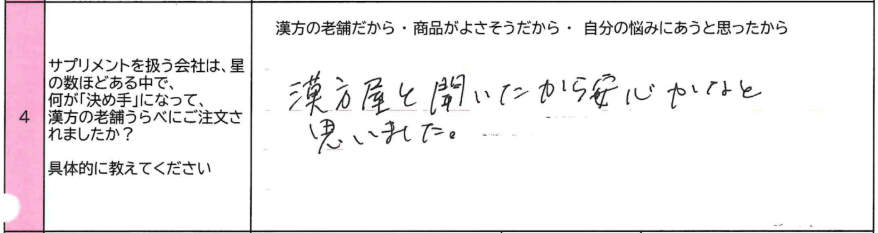 4
サプリメントを扱う会社は、星
の数ほどある中で、
何が「決め手」になって、
漢方の老舗うらべにご注文さ
れましたか？
具体的に教えてください
漢方の老舗だから・商品がよさそうだから・ 自分の悩みにあうと思ったから
漢方屋と聞いたから安心かなと
思いました。